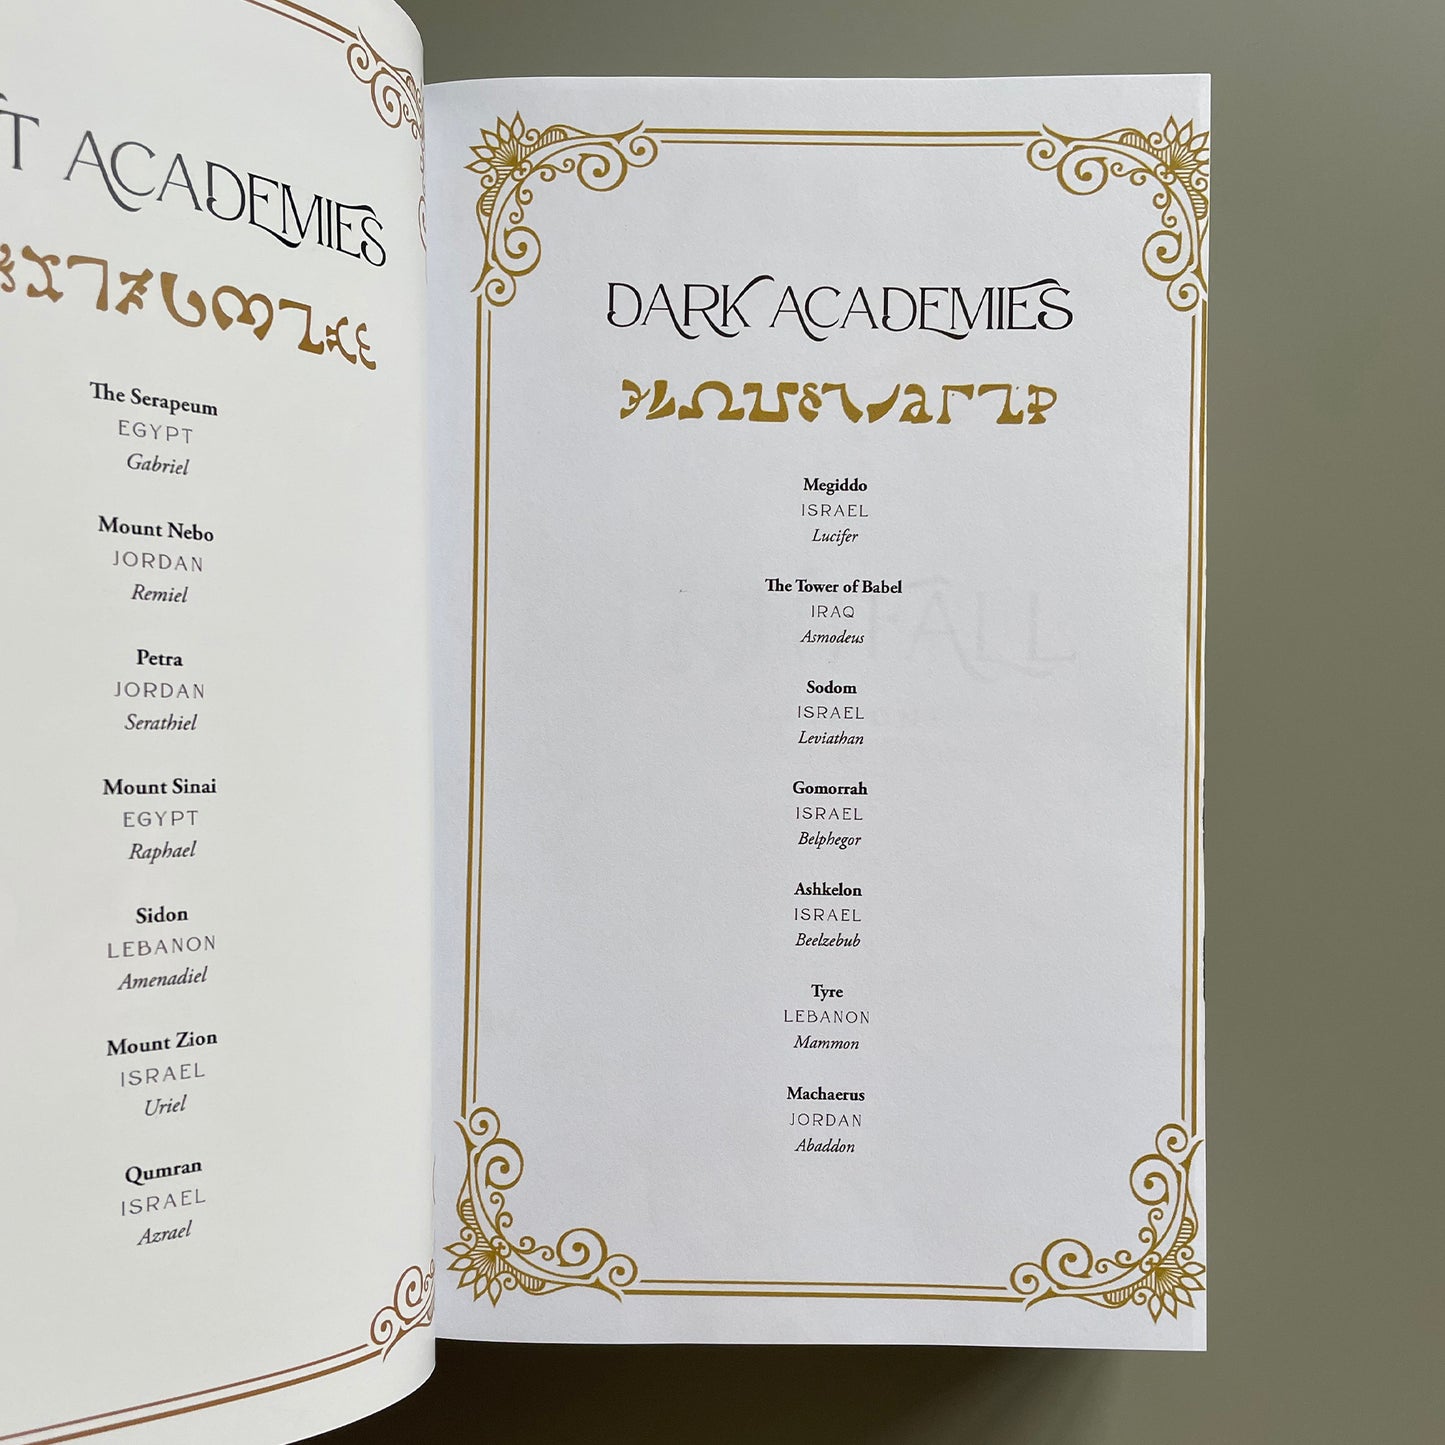 T ACADEMIES
The Serapeum
EGYPT
Gabriel
Mount Nebo
JORDAN
Remiel
Petra
JORDAN
Serathiel
Mount Sinai
EGYPT
Raphael
Sidon
LEBANON
Amenadiel
Mount Zion
ISRAEL
Uriel
Qumran
ISRAEL
Azrael
DARK ACADEMIES
Megiddo
ISRAEL
Lucifer
The Tower of Babel
IRAQ
Asmodeus
Sodom
ISRAEL
Leviathan
Gomorrah
ISRAEL
Belphegor
Ashkelon
ISRAEL
Beelzebub
Tyre
LEBANON
Mammon
Machaerus
JORDAN
Abaddon